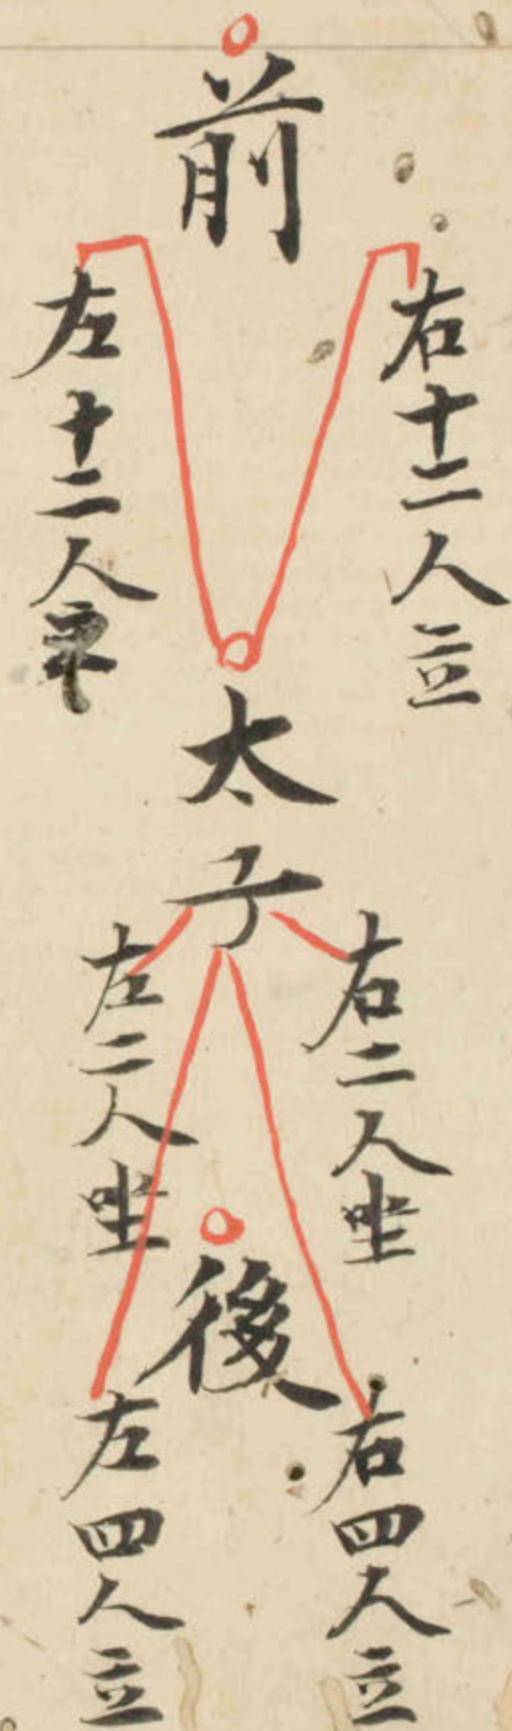 前
右十二人立
左十二人
太子
右二人坐
左二人坐
後
右四人立
左四人立